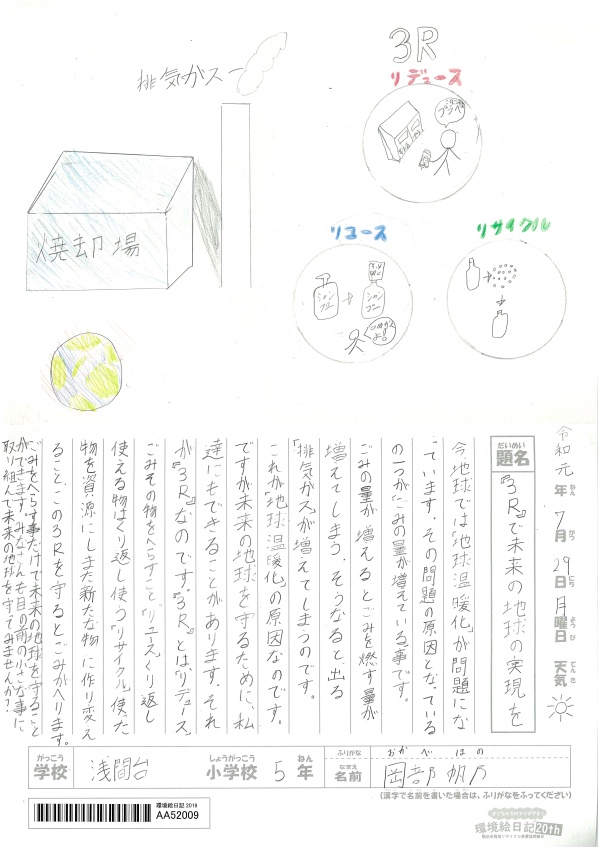 3R
排気ガス
リデュース
焼却場
リユース
リサイクル
シャンプー
シャンプー
令和元年7月29日月曜日 天気
ねん がつ にち ようび てんき
だいめい
題名
『3R』で未来の地球の実現を
今、地球では「地球温暖化」が問題にな
っています。その問題の原因となっている
の一つが「ごみの量が増えている」事です。
ごみの量が増えるとごみを燃す量が
増えてしまう。そうなると、出る
「排気ガス」が増えてしまうのです。
これが「地球温暖化」の原因なのです。
ですが未来の地球を守るために、私
達にもできることがあります。それ
が『3R』なのです。『3R』とは「リデュース」
ごみその物をへらすこと「リユース」くり返し
使える物はくり返し使う「リサイクル」使った
物を資源にしまた新たな物に作り変え
ること、この3Rを守るとごみがへります。
ごみをへらす事だけで未来の地球を守ること
ができます。みなさんも目の前の小さな事に
取り組んで未来の地球を守ってみませんか？
がっこう
学校
浅間台
しょうがっこう
小学校
5
ねん
年
ふりがな
おかべほの
なまえ
名前
岡部帆乃
(漢字で名前を書いた場合は、ふりがなをふってください)
環境絵日記 2019
AA52009
環境絵日記20th